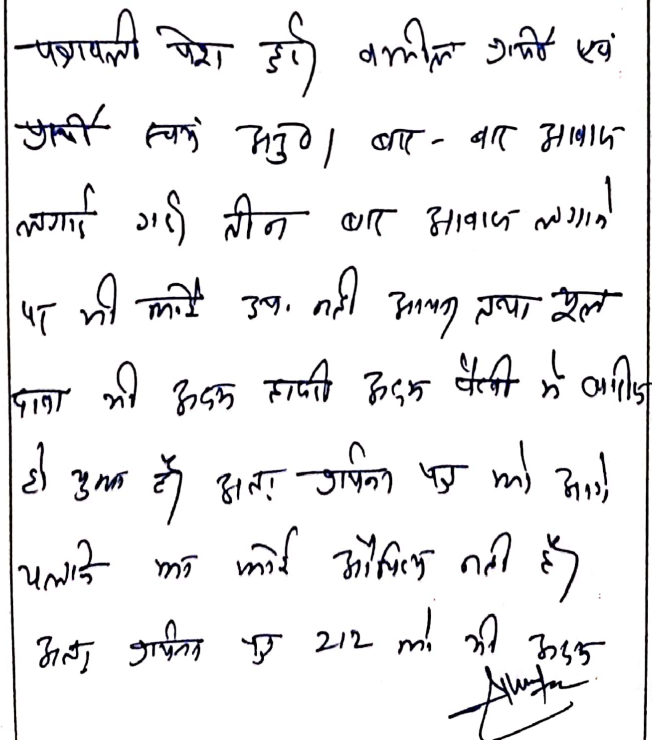 पत्रावली पेश हुई। वकील प्रार्थी एवं
प्रार्थी स्वयं अनु०। बार - बार आवाज
लगाई गई। तीन बार आवाज लगाने
पर भी कोई उप. नहीं आया तथा मूल
दावा भी अदम हाजरी अदम पैरवी में खारिज
हो चुका है। अतः प्रार्थना पत्र को आगे
चलाने का कोई औचित्य नहीं है।
अतः प्रार्थना पत्र 212 को भी अदम